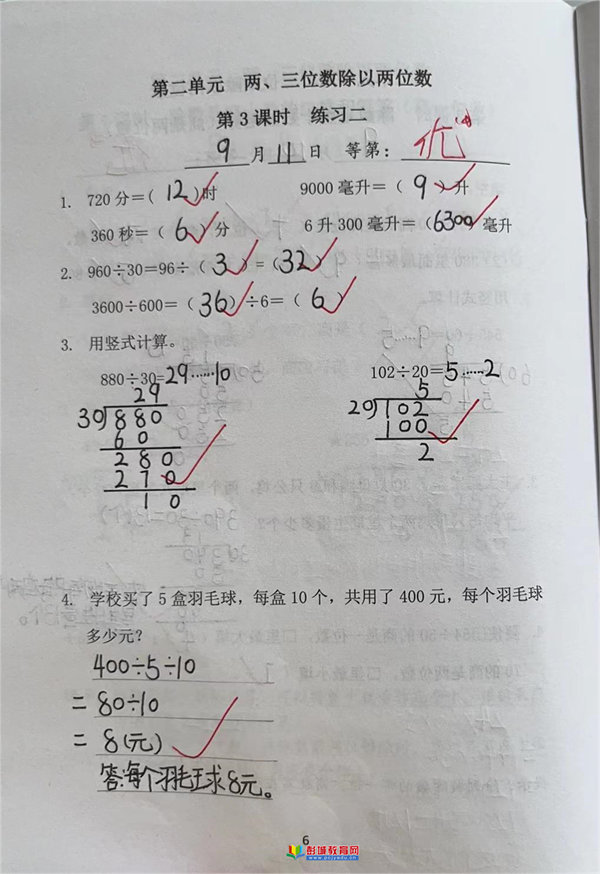 第二单元 两、三位数除以两位数
第3课时 练习二
9月11日 等第：优
1. 720分=( 12 )时 9000毫升=( 9 )升
360秒=( 6 )分 6升300毫升=(6300)毫升
2. 960÷30=96÷( 3 )=(32)
3600÷600=(36)÷6=( 6 )
3. 用竖式计算。
880÷30=29……10 102÷20=5……2
29 5
30)880 20)102
60 100
280 2
270
10
4. 学校买了5盒羽毛球，每盒10个，共用了400元，每个羽毛球
多少元？
400÷5÷10
=80÷10
=8(元)
答:每个羽毛球8元。
6
彭城教育网
www.pcjyedu.cn